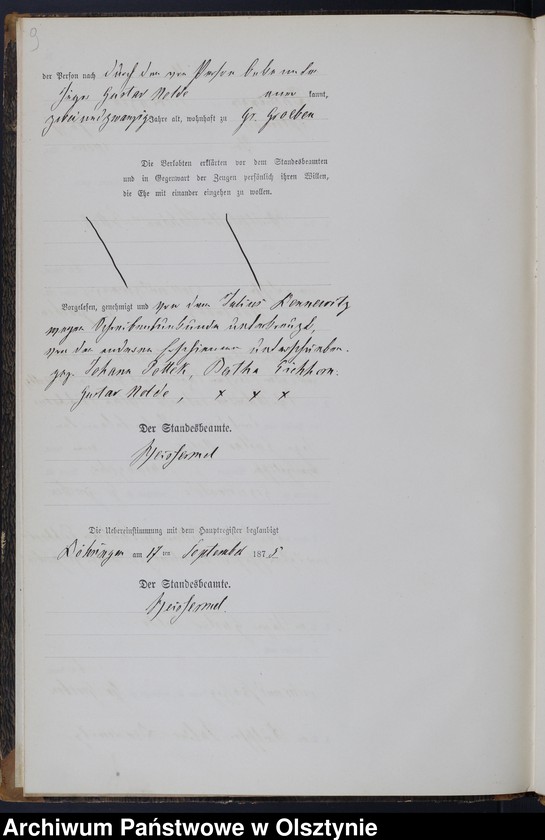 9
der Person nach durch den von Person bekannten
Gustav Nolde kannt,
zweiundzwanzig Jahre alt, wohnhaft zu Gr. Groeben
Die Verlobten erklärten vor dem Standesbeamten
und in Gegenwart der Zeugen persönlich ihren Willen,
die Ehe mit einander eingehen zu wollen.
Vorgelesen, genehmigt und von dem Julius Dennewitz
wegen Schreibensunkunde unterkreuzt,
von den anderen Erschienenen unterschrieben.
gez. Johann Bertha Eichhorn.
Gustav Nolde, x x x
Der Standesbeamte.
Die Uebereinstimmung mit dem Hauptregister beglaubigt
Döhringen am 17 ten September 1875
Der Standesbeamte.
Archiwum Państwowe w Olsztynie